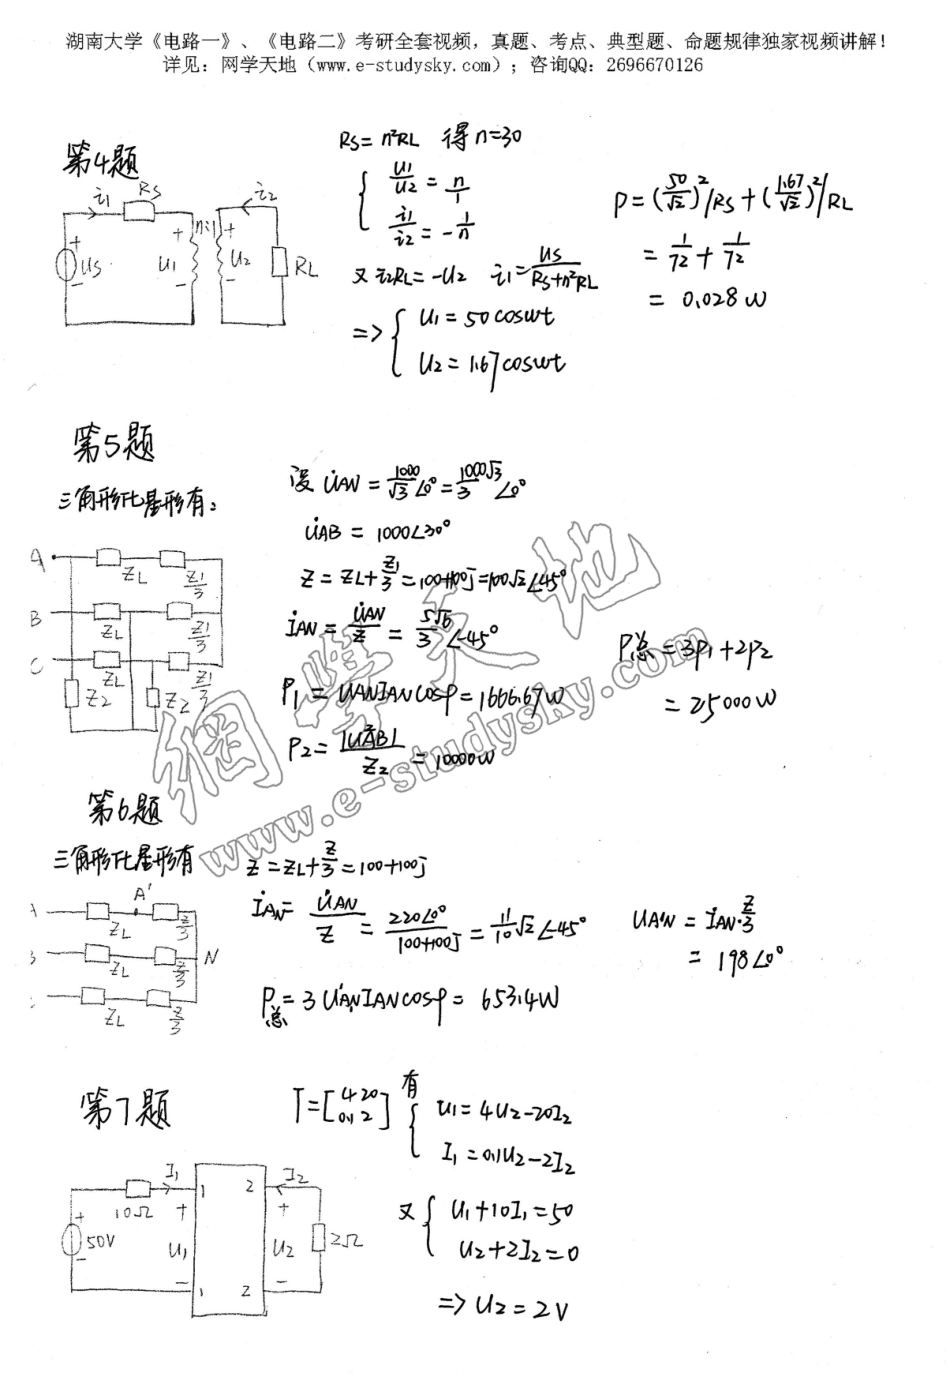 湖南大学《电路一》、《电路二》考研全套视频，真题、考点、典型题、命题规律独家视频讲解！
详见：网学天地（www.e-studysky.com）；咨询QQ：2696670126
第4题
i₁ Rs n:1 i₂
+ us - + u₁ - + u₂ - RL
Rs=n²RL 得n=30
{ u₁/u₂ = n/1
i₁/i₂ = -1/n
又 i₂RL=-u₂ i₁=us/(Rs+n²RL)
=> { u₁=50coswt
u₂=1.67coswt
P=(50/√2)²/Rs+(1.67/√2)²/RL
= 1/72 + 1/72
= 0.028W
第5题
三角形比星形有:
A ZL Z1/3
B ZL Z1/3
C ZL Z1/3
Z2 Z2
设 U̇AN = 1000/√3∠0° = 1000√3/3∠0°
U̇AB = 1000∠30°
Z = ZL+Z1/3 = 100+100j=100√2∠45°
İAN = U̇AN/Z = 5√6/3∠-45°
P1 = UANIANcosφ=1666.67W
P2= |U²AB|/Z2 = 10000W
P总 = 3P1+2P2
= 25000W
第6题
三角形比星形有
A' ZL Z/3
ZL Z/3 N
ZL Z/3
Z = ZL+Z/3 = 100+100j
İAN= U̇AN/Z = 220∠0°/(100+100j) = 11/10√2∠-45°
UA'N = İAN·Z/3
= 198∠0°
P总=3UA'NIANcosφ= 653.4W
第7题
T=[4 20
0.1 2] 有
{ u₁=4u₂-20I₂
I₁=0.1u₂-2I₂
又{ u₁+10I₁=50
u₂+2I₂=0
=> u₂=2V
I₁ 1 2 I₂
10Ω + +
+ 50V - u₁ u₂ 2Ω
- 1 2 -
網學天地
www.e-studysky.com